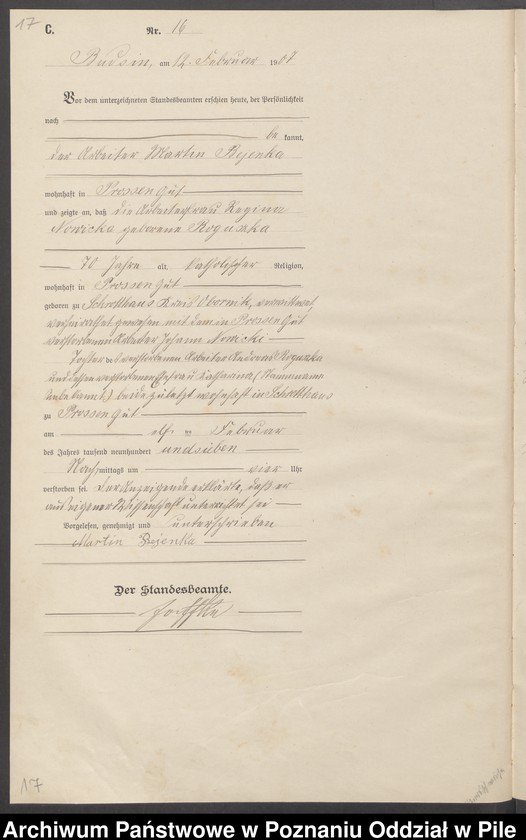 17
C. Nr. 16
Budsin, am 12. Februar 1907
Vor dem unterzeichneten Standesbeamten erschien heute, der Persönlichkeit
nach
be kannt,
der Arbeiter Martin Bejenka
wohnhaft in Prossen Gut
und zeigte an, daß die Arbeiterfrau Regina
Nowicka geborene Roguszka
70 Jahre alt, katholischer Religion,
wohnhaft in Prossen Gut
geboren zu Schrotthaus Kreis Obornik, verwittwet,
verheirathet gewesen mit dem in Prossen Gut
verstorbenen Arbeiter Johann Nowicki
Tochter des verstorbenen Arbeiters Andreas Roguszka
und dessen verstorbenen Ehefrau Katharina (Stammname
unbekannt) beide zuletzt wohnhaft in Schrotthaus
zu Prossen Gut
am elf ten Februar
des Jahres tausend neunhundert und sieben
Nach mittags um vier Uhr
verstorben sei. Der Anzeigende erklärte, daß er
aus eigener Wissenschaft unterrichtet sei
Vorgelesen, genehmigt und unterschrieben
Martin Bejenka
Der Standesbeamte.
17
Archiwum Państwowe w Poznaniu Oddział w Pile